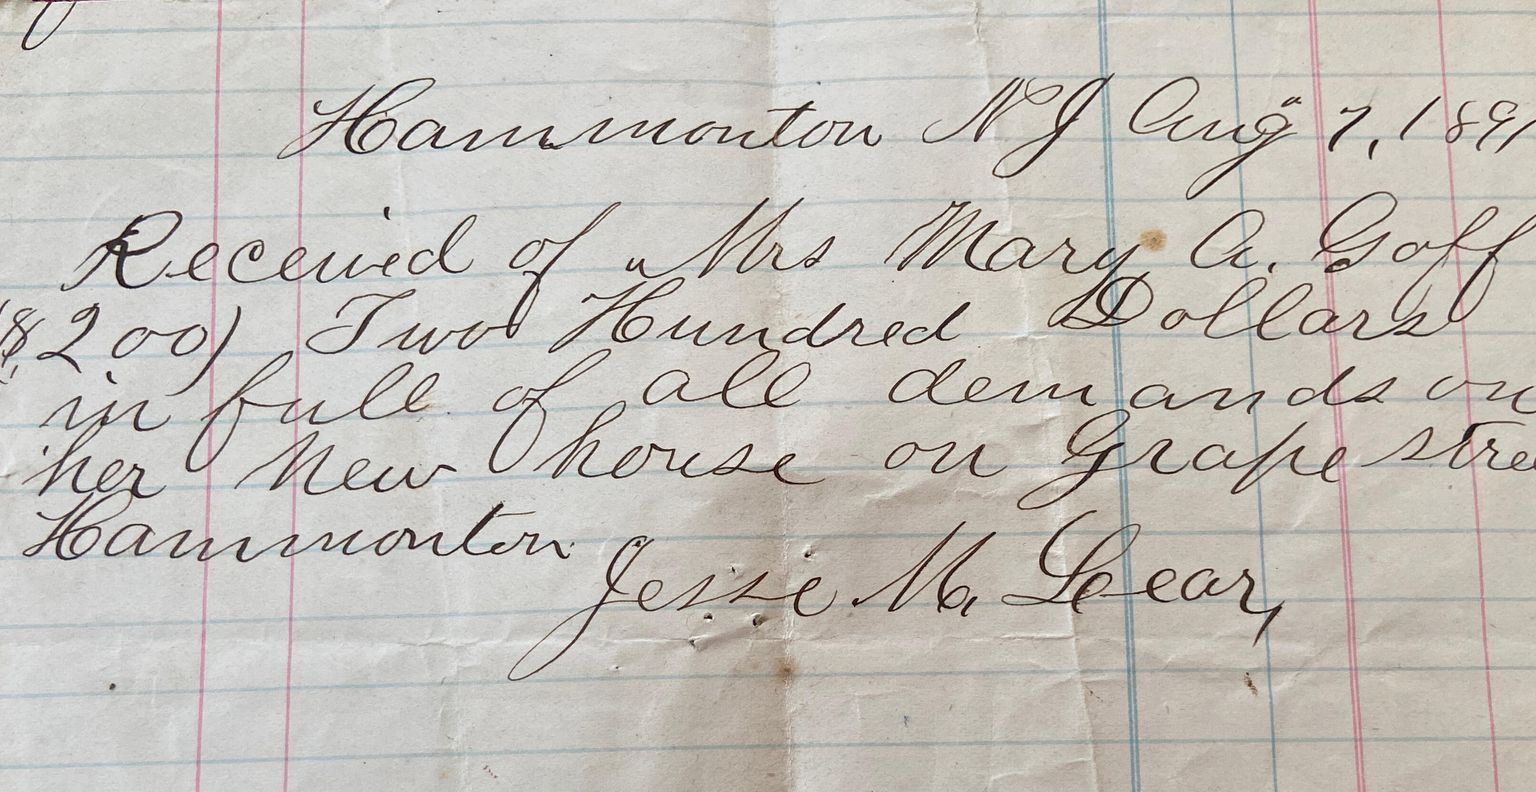 Hammonton N J Aug 7, 1891
Received of Mrs Mary A. Goff
($200) Two Hundred Dollars
in full of all demands on
her New house on Grape stree
Hammonton
Jesse M. Lear,